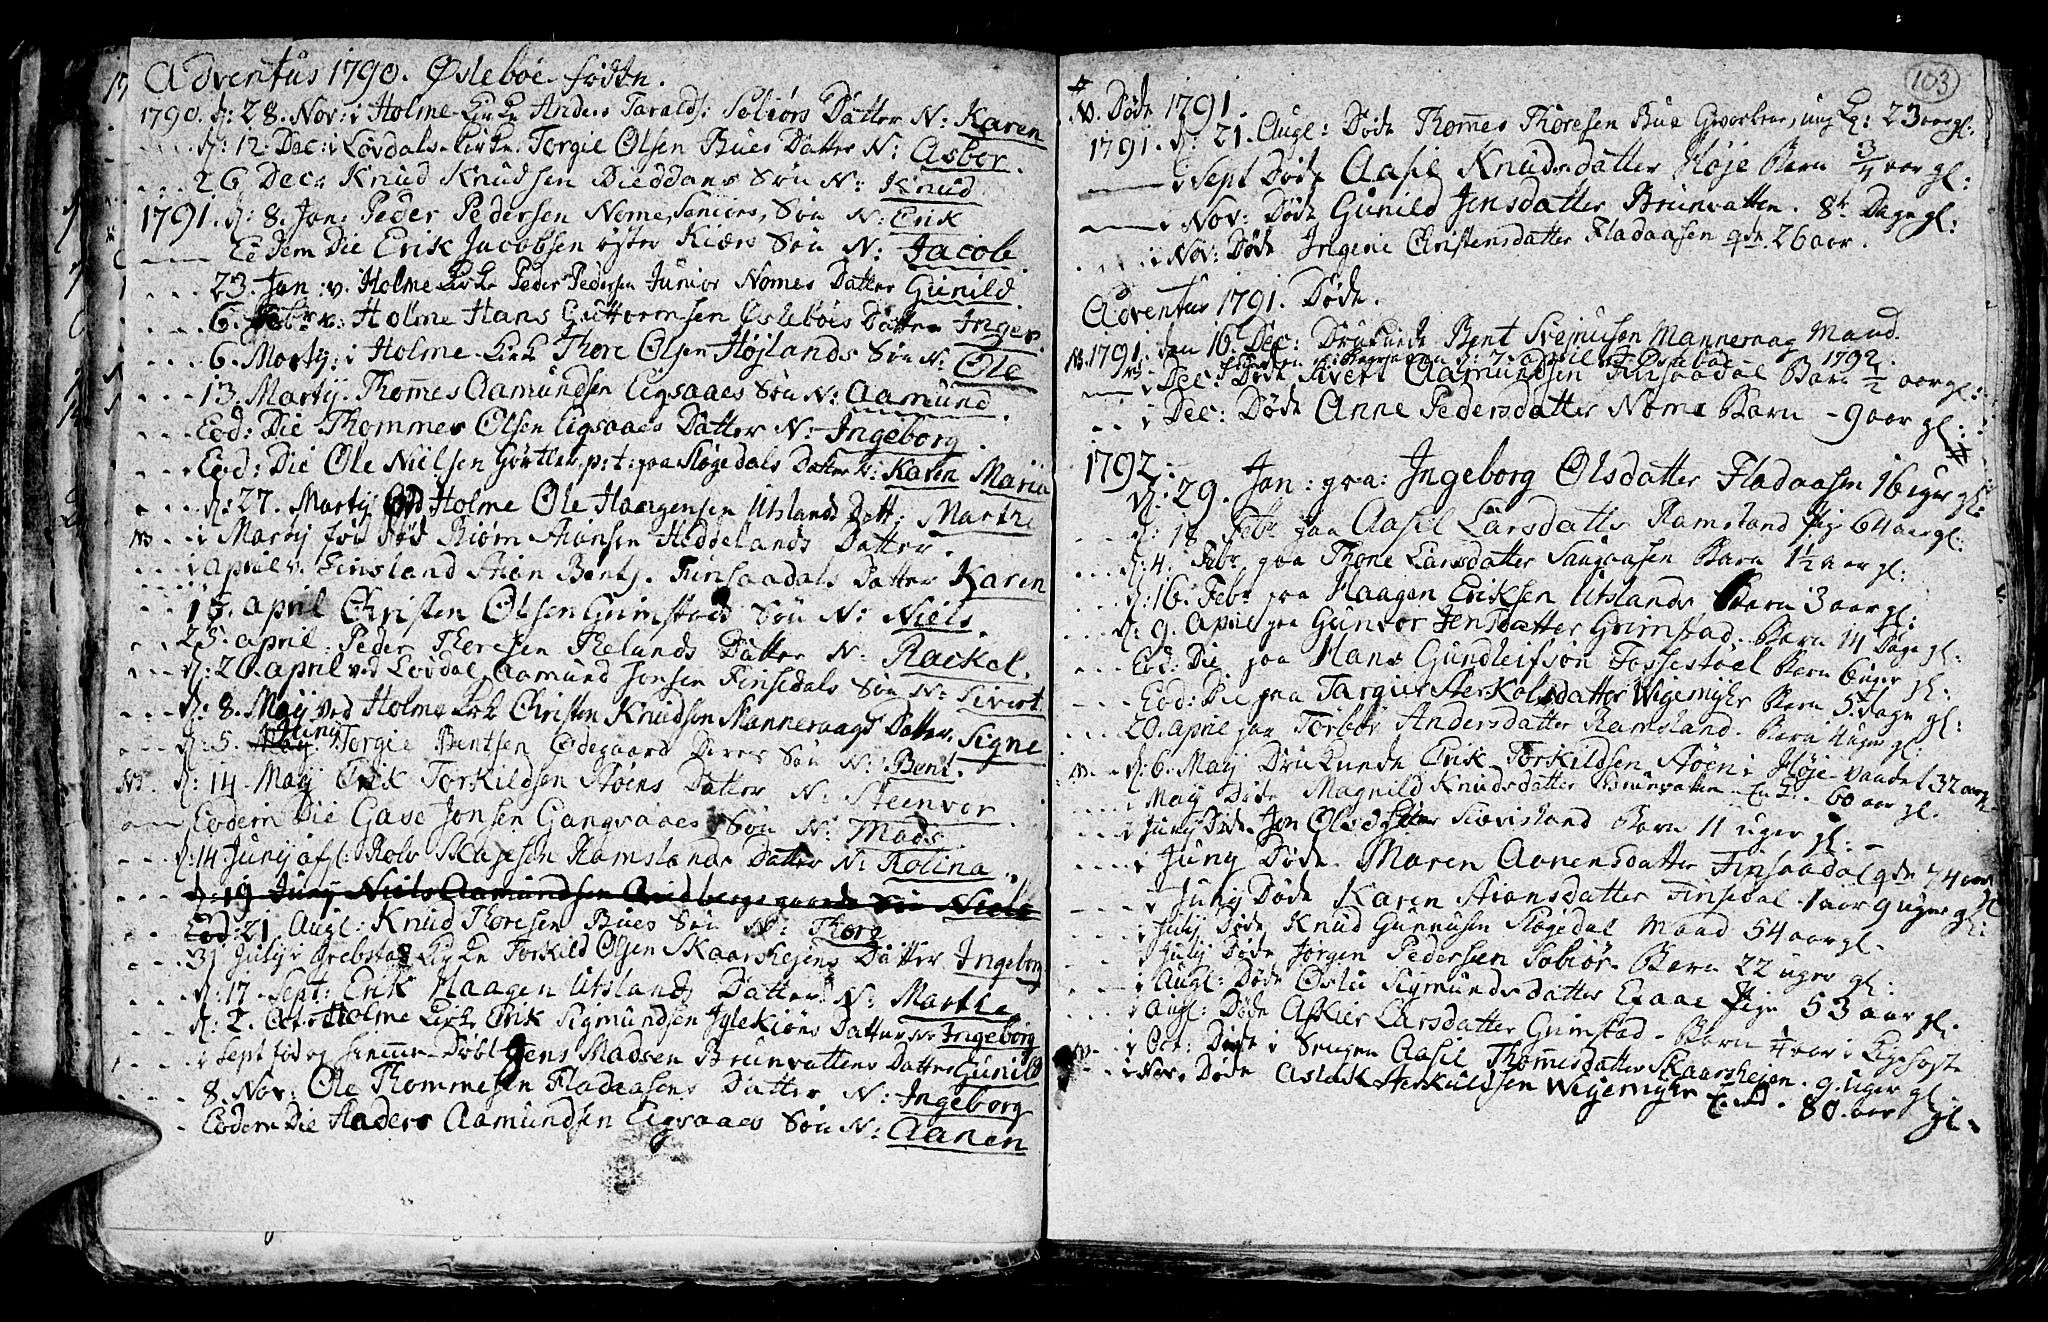 Adventus 1790. Øslebøe fødte.
1790. d: 28. Nov: i Holme Kirke Anders Taralds: Soliørs Datter N: Karen
d: 12 Dec: i Løvdals Kirke Torgie Olsen Bues Datter N: Asbor.
26 Dec: Knud Knudsen Dieddans Søn N: Knud
1791. d: 8. Jan: Peder Pedersen Nome, Seniors, Søn N: Erik
Eodem Die Erik Jacobsen øster Kiærs Søn N: Jacob.
23. Jan: v. Holme Kirke Peder Pedersen Junior Nomes Datter Gunild.
6. Febr v: Holme Hans Guttormsen Øslebøes Datter Inger.
6. Martij: i Holme Kirke Thore Olsen Højlands Søn N: Ole
13. Martij. Thomes Aamundsen Eigsaaes Søn N: Aamund.
Eod: Die Thommes Olsen Eigsaaes Datter N: Ingeborg.
Eod: Die Ole Nielsen Gørtler, p: t: paa Fløgedals Datter N: Karen Maria
d: 27. Martij ved Holme Ole Haagensen Utslands Datt: Marthe
NB i Martij fød død Biørn Aiansen Heddelands Datter.
i april v. Finsland Aian Bentz. Finsaadals Datter Karen
15. april Christen Olsen Grimstads Søn N: Niels.
23. april. Peder Thoresen Thelands Datter N: Rackel.
d: 20. april ved Løvdal Aamund Jonsen Finsedals Søn N: Sivert.
d: 8. Maij ved Holme Kirke Christen Knudsen Manneraags Datter Signe
d: 5. Junij Torgie Bentsen Ødegaard Søn N: Bent.
NB. d: 14. Maij Erik Torkildsen Støens Datter N: Steenvor
Eodem Die Gase Jonsen Gangsaaes Søn N: Mads.
d: 14 Junij Rolv Ramslands Datter N: Rolina.
d: 19 Junij Niels Aamundsen Søn Niels
Eod: 21 Augl: Knud Thoresen Bues Søn N: Thore
31 Julij i Grebstad Kirke Torkild Olsen Skaarshejens Datter Ingeborg
d: 17. Sept: Erik Haagen Utslands Datter N: Marthe
d: 2. Octr Holme Kirke Erik Sigmundsen Datter N: Ingeborg
i Sept fød og hjemme Døbt Jens Madsen Brunvattens Datter Gunild
8. Nov: Ole Thommesen Fladaasens Datter N: Ingeborg
Eodem Die Anders Aamundsen Eigsaaes Søn N: Aanen
103
N. Døde 1791.
1791. d: 21. Augl: Døde Thomes Thoresen Bue ung K: 23 aar gl:
i Sept Døde Aasil Knudsdatter Høje Barn 3/4 aar gl:
i Nov: Døde Gunild Jensdatter Brunvatten. 8te Dage gl:
i Nov: Døde Ingeni Christensdatter Fladaasen qde 26 aar.
Adventus 1791. Døde.
NB. 1791. den 16. Dec: Druknede Bent Svejnusen Manneraag Mand.
begraven d: 7. april ved Øslebøe 1792.
i Dec: Døde Sivert Aamundsen Finsaadal Barn 1/2 aar gl:
i Dec: Døde Anne Pedersdatter Nome Barn - 9 aar gl:
1792.
d: 29. Jan: paa: Ingeborg Olsdatter Fladaasen 16 uger gl:
d: 18. Febr paa Aasil Larsdatter Ramsland Pige 64 aar gl:
d: 4. Febr. paa Thone Larsdatter Sangaasen Barn 1 1/2 aar gl:
d: 16. Febr paa Haagen Eriksen Utslands Barn 3 aar gl:
d: 9. April paa Gunvor Jensdatter Grimstad. Barn 14 Dage gl:
Eod: Die paa Hans Gundleifsøn Fossestøel Barn 6 uger gl:
Eod: Die paa Targier Sterkolsdatter Wigemyhr Barn 5 dage gl:
20. april paa Torbør Andersdatter Ramsland. Barn 4 uger gl:
NB. d: 6. Maij Druknede Erik Torkildsen Støen i Høje vandet 32 aar gl
i Maij Døde Magnild Knudsdatter Brunvatten Enke. 60 aar gl.
i Junij Døde Jon Olsdatter Barn 11 uger gl: -
i Junij Døde Maren Aanensdatter Finsaadal qde 74 aar gl
i Junij Døde Karen Aiansdatter Finsedal - 1 aar 9 uger gl:
i Julij Døde Knud Gunnusen Fløgedal Mand 54 aar gl.
i Julij Døde Jørgen Pedersen Soliør. Barn 22 uger gl:
i Augl: Døde Oslu Sigmundsdatter Efaae Pige 53 aar gl.
i Augl: Døde Askier Larsdatter Grimstad - Barn 1/4 aar i
NB. i Oct: Døde i Sengen Aasil Thomesdatter Skaarshejen. 9 uger gl.
i Nov. Døde Aslak Sterkuldsen Wigemyhr Enkmd. 80. aar gl.